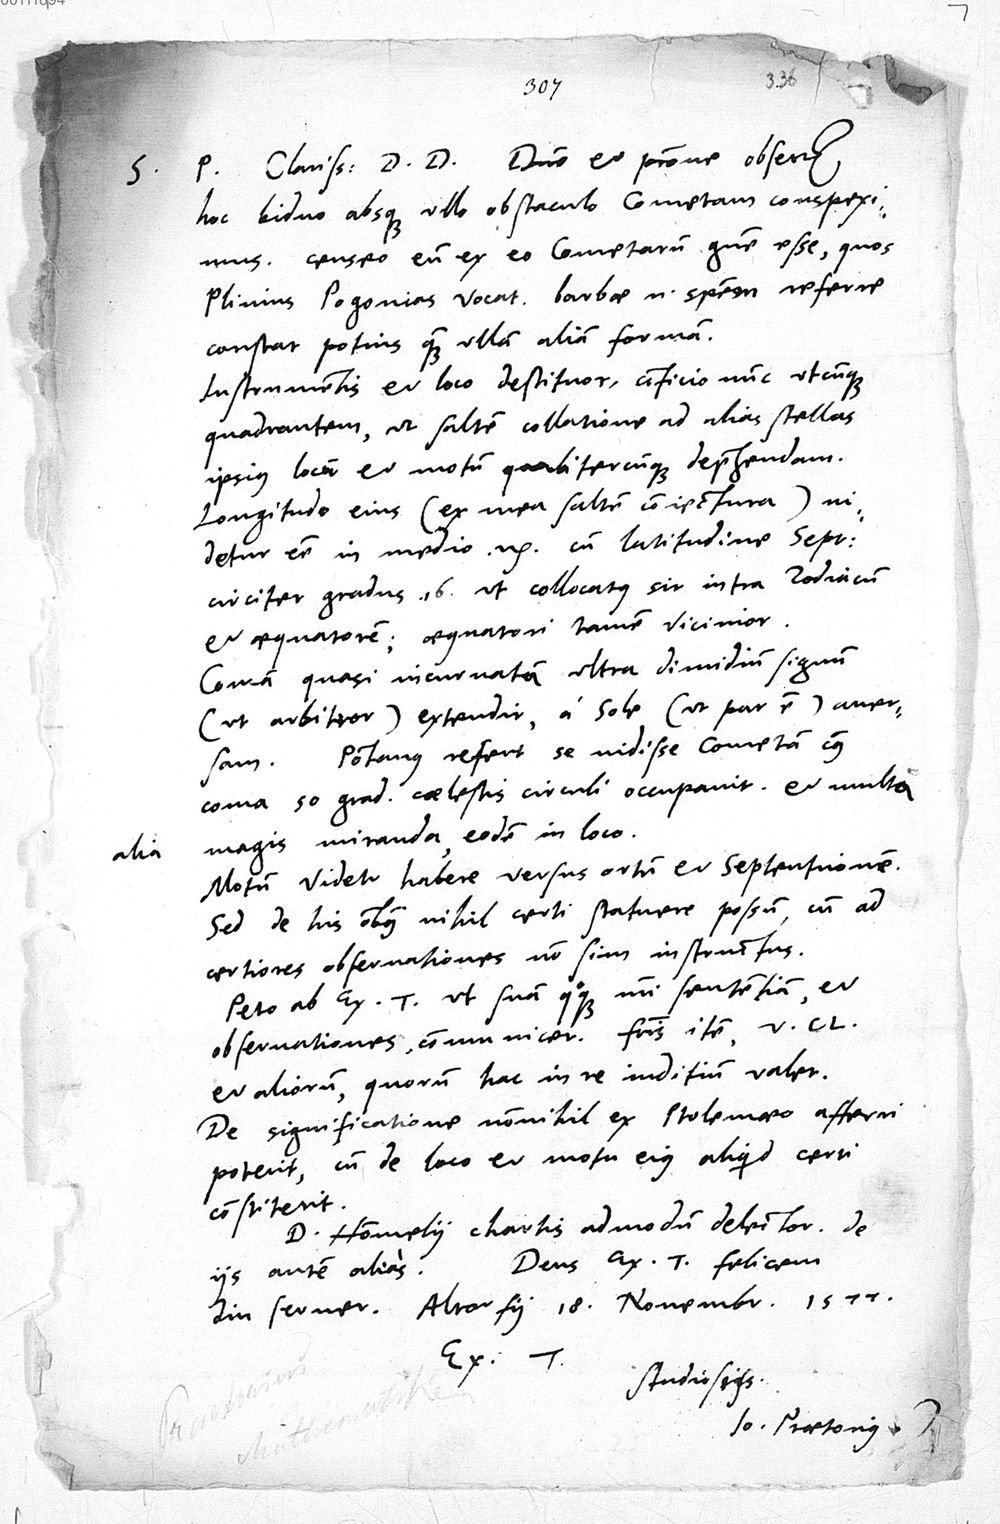 307
336
S. P. Clariss: D. D. Dno͞ et pro͞ne obserua͞
hoc biduo absq₃ vllo obstaculo Cometam conspexi-
mus. censeo eu͞ ex eo Cometaru͞ gn͞e esse, quos
Plinius Pogonias vocat. barbæ n. spe͞em referre
constat potius qua͞ vlla͞ alia͞ forma͞.
Instrumen͞tis et loco destituor, co͞ficio nu͞c vtcu͞q₃
quadrantem, vt salte͞ collatione ad alias stellas
ipsiꝰ locu͞ et motu͞ qualitercu͞q₃ dep͞hendam.
Longitudo eius (ex mea salte͞ co͞iectura) ui-
detur ee͞ in medio ♑. cu͞ latitudine Sept:
circiter gradus .16. vt collocatꝰ sit intra Zodiacu͞
et æquatore͞; æquatori tame͞ vicinior.
Coma͞ quasi incuruata͞ vltra dimidiu͞ signu͞
(vt arbitror) extendit, á Sole (vt par e͞) auer-
sam. Po͞tanꝰ refert se uidisse Cometa͞ cꝰ
coma 50 grad. cœlestis circuli occupauit. et multa
alia magis miranda, eode͞ in loco.
Motu͞ videtr habere versus ortu͞ et Septentrione͞.
Sed de his o͞bꝰ nihil certi statuere possu͞, cu͞ ad
certiores obseruationes no͞ sim instructus.
Peto ab Ex. T. vt sua͞ qꝫ mi͞ sente͞tia͞, et
obseruationes, co͞municet. fr͞is ite͞, v. CL.
et alioru͞, quoru͞ hac in re iuditiu͞ valet.
De significatione no͞nihil ex Ptolemæo afferri
poterit, cu͞ de loco et motu eiꝰ aliqd͞ certi
co͞stiterit.
D. Ho͞melij chartis admodu͞ delector. de
ijs aute͞ aliàs. Deus Ex. T. felicem
diu seruet. Altorfij 18. Nouembr. 1577.
Ex: T.
studiosiss.
Io. Prætoriꝰ
Praetorius
Mathematiker